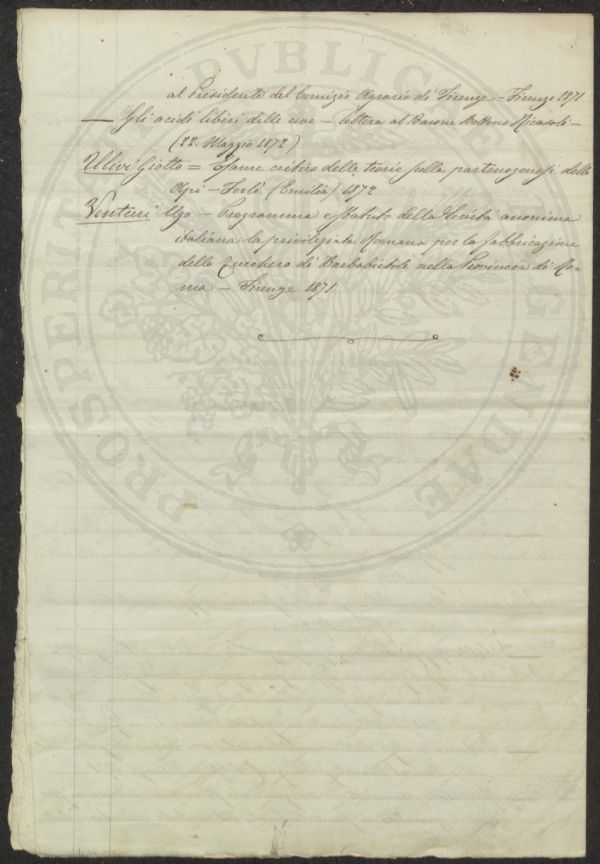 al Presidente del Comizio Agrario di Firenze – Firenze 1871
— Gli acidi liberi delle uve – lettera al Barone Bettino Ricasoli –
(22. Maggio 1872)
Ulivi Giotto = Esame critico delle teorie sulla partenogenesi delle
Api – Forlì (Emilia) 1872
Venturi Ugo – Programma e Statuto della Società anonima
italiana la privilegiata Romana per la fabbricazione
dello Zucchero di Barbabietole nella Provincia di Ro-
ma – Firenze 1871
PROSPERITATI PVBLICAE AVGENDAE